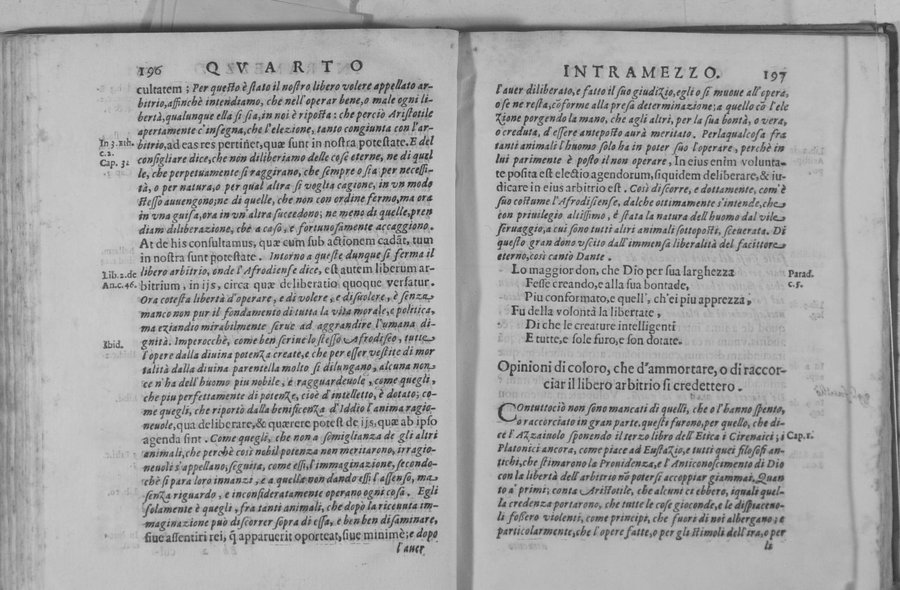 196 QVARTO
cultatem; Per questo è stato il nostro libero volere appellato ar-
bitrio, affinchè intendiamo, che nell'operar bene, o male ogni li-
bertà, qualunque ella si sia, in noi è riposta: che perciò Aristotile
apertamente c'insegna, che l'elezione, tanto congiunta con l'ar-
In 3. eth. c. 2. Cap. 31
bitrio, ad eas res pertinet, quæ sunt in nostra potestate. E del
consigliare dice, che non diliberiamo delle cose eterne, ne di quel
le, che perpetuamente si raggirano, che sempre o sia per necessi-
tà, o per natura, o per qual altra si voglia cagione, in vn modo
stesso auuengono; ne di quelle, che non con ordine fermo, ma ora
in vna guisa, ora in vn'altra succedono; ne meno di quelle, pren
diam diliberazione, che a caso, e fortunosamente accaggiono.
At de his consultamus, quæ cum sub actionem cadāt, tum
in nostra sunt potestate. Intorno a queste dunque si ferma il
Lib. 2. de An. c. 46.
libero arbitrio, onde l'Afrodiense dice, est autem liberum ar-
bitrium, in ijs, circa quæ deliberatio quoque versatur.
Ora cotesta libertà d'operare, e di volere, e disuolere, è senza
manco non pur il fondamento di tutta la vita morale, e politica,
ma eziandio mirabilmente serue ad aggrandire l'umana di-
Ibid.
gnità. Imperocchè, come ben scriue lo stesso Afrodiseo, tutte
l'opere dalla diuina potenza create, e che per esser vestite di mor
talità dalla diuina parentella molto si dilungano, alcuna non
ce n'ha dell'huomo piu nobile, e ragguardeuole, come quegli,
che piu perfettamente di potenze, cioè d'intelletto, è dotato; co-
me quegli, che riportò dalla beneficenza d'Iddio l'anima ragio-
neuole, qua deliberare, & quærere potest de ijs, quæ ab ipso
agenda sint. Come quegli, che non a somiglianza de gli altri
animali, che perchè così nobil potenza non meritarono, irragio-
neuoli s'appellano, seguita, come essi, l'immaginazione, secondo-
chè si para loro innanzi, e a quella non dando essi l'assenso, ma
senza riguardo, e inconsideratamente operano ogni cosa. Egli
solamente è quegli, fra tanti animali, che dopo la riceuuta im-
maginazione può discorrer sopra di essa, e ben ben disaminare,
siue assentiri rei, q̄ apparuerit oporteat, siue minimè; e dopo
l'auer
INTRAMEZZO. 197
l'auer diliberato, e fatto il suo giudizio, egli o si muoue all'opera,
o se ne resta, cōforme alla presa determinazione; a quello cō l'ele
zione porgendo la mano, che agli altri, per la sua bontà, o vera,
o creduta, d'essere anteposto aurà meritato. Perlaqualcosa fra
tanti animali l'huomo solo ha in poter suo l'operare, perchè in
lui parimente è posto il non operare, In eius enim volunta-
te posita est electio agendorum, siquidem deliberare, & iu-
dicare in eius arbitrio est. Così discorre, e dottamente, com'è
suo costume l'Afrodisense, dalche ottimamente s'intende, che
con priuilegio altissimo, è stata la natura dell'huomo dal vile
seruaggio, a cui sono tutti altri animali sottoposti, sceuerata. Di
questo gran dono vscito dall'immensa liberalità del facittore
eterno, così cantò Dante.
Lo maggior don, che Dio per sua larghezza
Parad. c. 5.
Fesse creando, e alla sua bontade,
Piu conformato, e quell', ch'ei piu apprezza,
Fu della volontà la libertate,
Di che le creature intelligenti
E tutte, e sole furo, e son dotate.
Opinioni di coloro, che d'ammortare, o di raccor-
ciar il libero arbitrio si credettero.
Contuttociò non sono mancati di quelli, che o l'hanno spento,
o raccorciato in gran parte. questi furono, per quello, che di-
ce l'Azzaiuolo sponendo il terzo libro dell'Etica i Cirenaici; i
Cap. 1.
Platonici ancora, come piace ad Eustazio, e tutti quei filosofi an-
tichi, che stimarono la Prouidenza, e l'Anticonoscimento di Dio
con la libertà dell'arbitrio nō potersi accoppiar giammai. Quan
to a' primi; conta Aristotile, che alcuni ci ebbero, iquali quel-
la credenza portarono, che tutte le cose gioconde, e le dispiaceuo-
li fossero violenti, come principi, che fuori di noi albergano; e
particolarmente, che l'opere fatte, o per gli stimoli dell'ira, o per
le